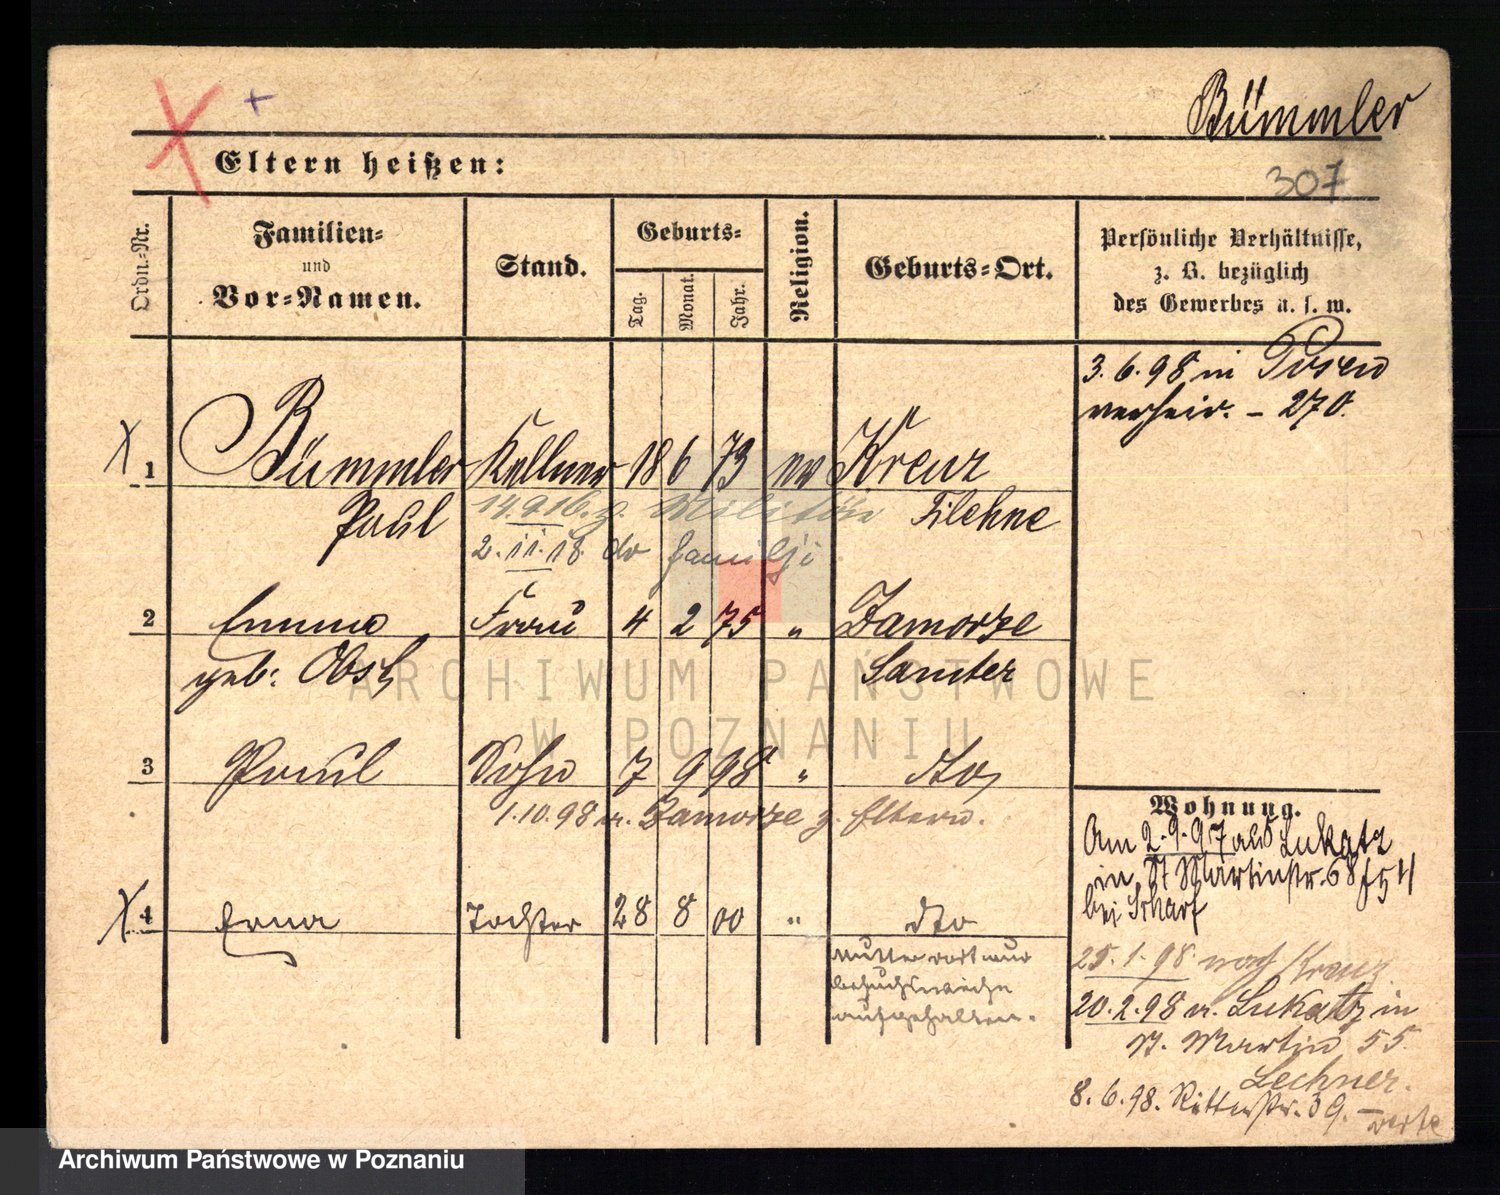 Bümmler
Eltern heißen:
307
Ordn.-Nr.
Familien-
und
Vor-Namen.
Stand.
Geburts-
Tag.
Monat.
Jahr.
Religion.
Geburts-Ort.
Persönliche Verhältnisse,
z. B. bezüglich
des Gewerbes u. s. w.
3.6.98 in Posen
verheir. - 270.
1 Bümmler Kellner 18 6 73 ev Kreuz
Paul Filehne
14.9.16. z. Militär
2.11.18 do familji
2 Emma Frau 4 2 75 " Zamorze
geb: Obst Samter
3 Paul Sohn 7 9 98 " dto
1.10.98 v. Zamorze z. Eltern.
4 Erna Tochter 28 8 00 " dto
Mutter dort nur
besuchsweise
aufgehalten.
Wohnung.
Am 2.9.97 aus Lukatz
in St Martinstr. 68
bei Scharf
25.1.98 nach Kreuz
20.2.98 v. Lukatz in
St. Martin 55
Lechner.
8.6.98. Ritterstr. 39. -
ARCHIWUM PAŃSTWOWE
W POZNANIU
Archiwum Państwowe w Poznaniu